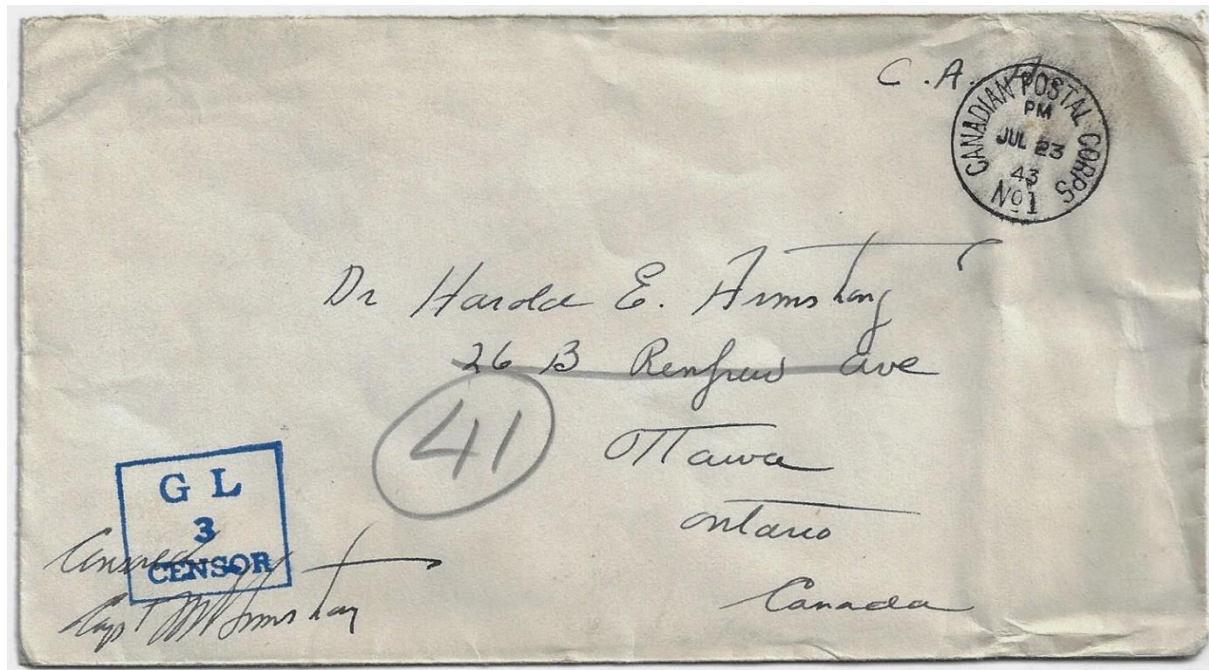 C. A.
CANADIAN POSTAL CORPS
PM
JUL 23
43
No 1
Dr Harold E. Armstrong
26 B Renfrew Ave
41
Ottawa
Ontario
Canada
G L
3
CENSOR
Censored
Capt Armstrong